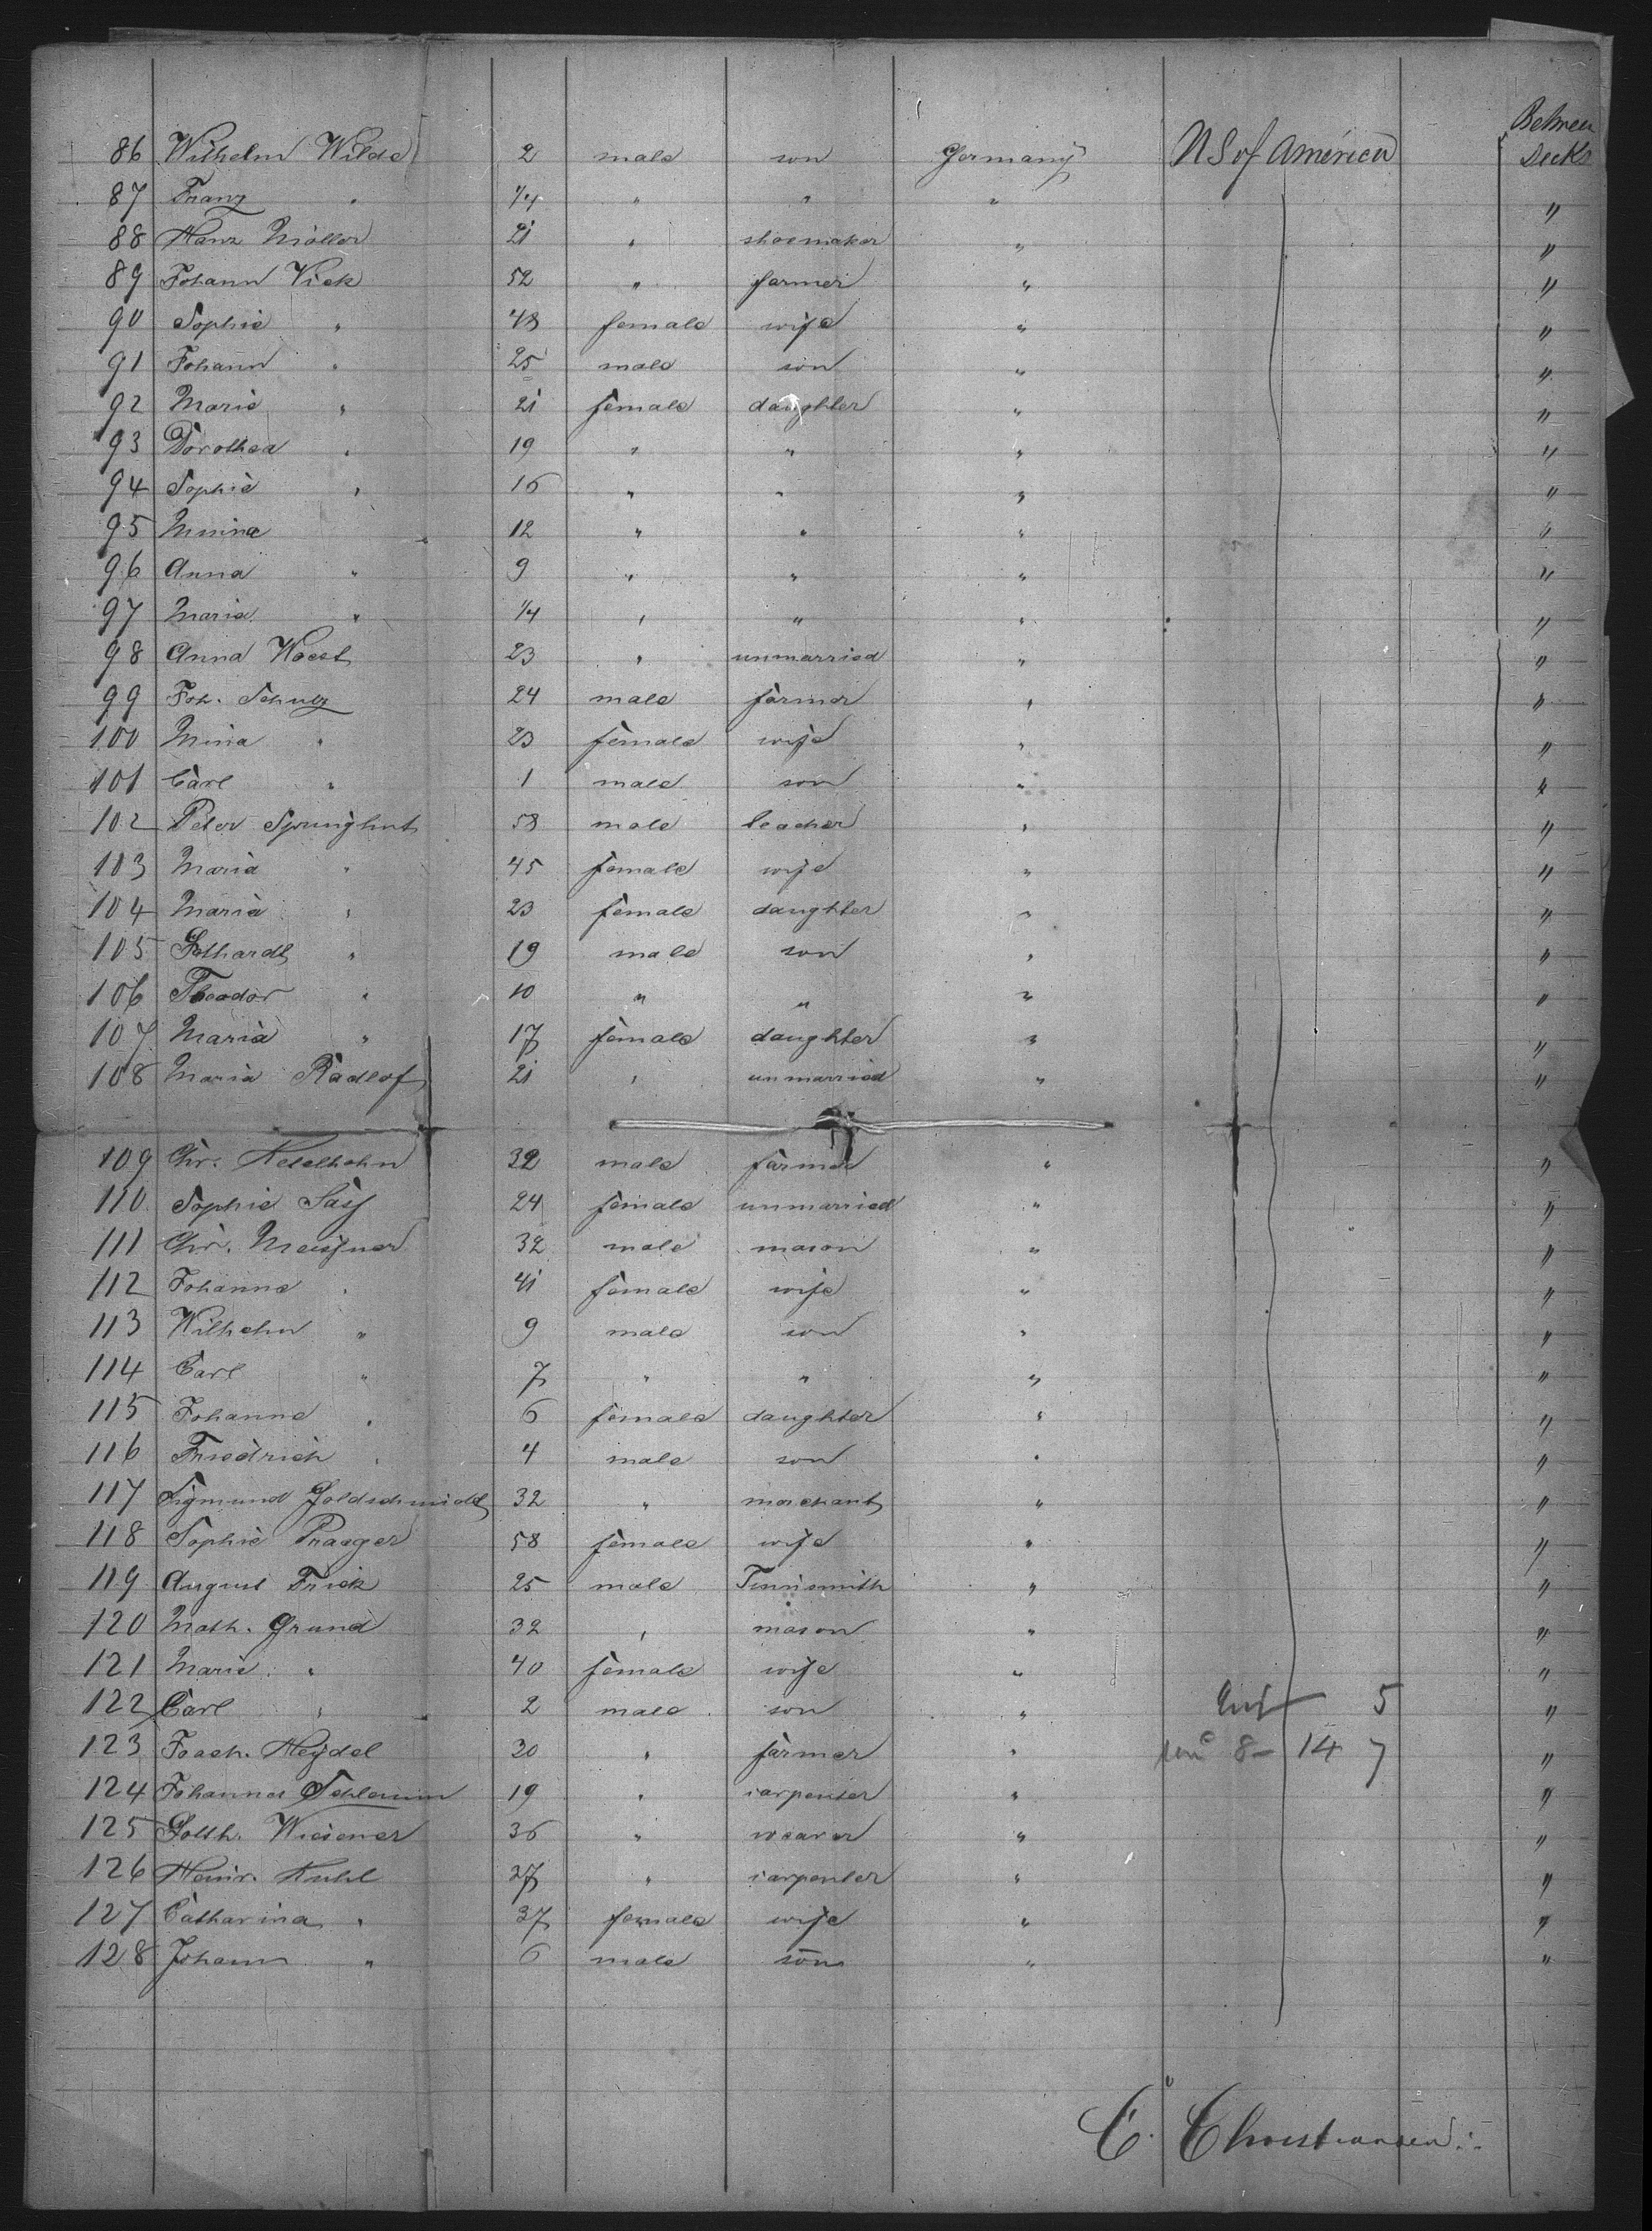 Between
86 Wilhelm Wilde 2 male son Germany US of America Decks
87 Franz " 1/4 " " " "
88 Hans Möller 21 " shoemaker " "
89 Johann Vick 52 " farmer " "
90 Sophie " 48 female wife " "
91 Johann " 25 male son " "
92 Marie " 21 female daughter " "
93 Dorothea " 19 " " " "
94 Sophie " 16 " " " "
95 Minna 12 " " " "
96 Anna " 9 " " " "
97 Maria " 1/4 " " " "
98 Anna Woest 23 " unmarried " "
99 Joh. Schulz 24 male farmer " "
100 Mina " 23 female wife " "
101 Carl " 1 male son " "
102 Peter Springhut 58 male teacher " "
103 Maria " 45 female wife " "
104 Maria " 23 female daughter " "
105 Gothardt " 19 male son " "
106 Theodor " 10 " " " "
107 Maria " 17 female daughter " "
108 Maria Radlof 21 " unmarried " "
109 Chr. Ketelhohn 32 male farmer " "
110 Sophie Saß 24 female unmarried " "
111 Chr. Meißner 32 male mason " "
112 Johanne " 41 female wife " "
113 Wilhelm " 9 male son " "
114 Carl " 7 " " " "
115 Johanne " 6 female daughter " "
116 Friedrich " 4 male son " "
117 Sigmund Goldschmidt 32 " merchant " "
118 Sophie Praager 58 female wife " "
119 August Frick 25 male Tinnsmith " "
120 Math. Grund 32 " mason " "
121 Marie " 40 female wife " "
122 Carl " 2 male son " Inf 5 "
123 Joach. Heydel 30 " farmer " 8 - 14 7 "
124 Johannes Schlemm 19 " carpenter " "
125 Gotth. Wiesener 36 " weaver " "
126 Heinr. Kuhl 27 " carpenter " "
127 Catharina " 37 female wife " "
128 Johann " 6 male son " "
C. Christiansen